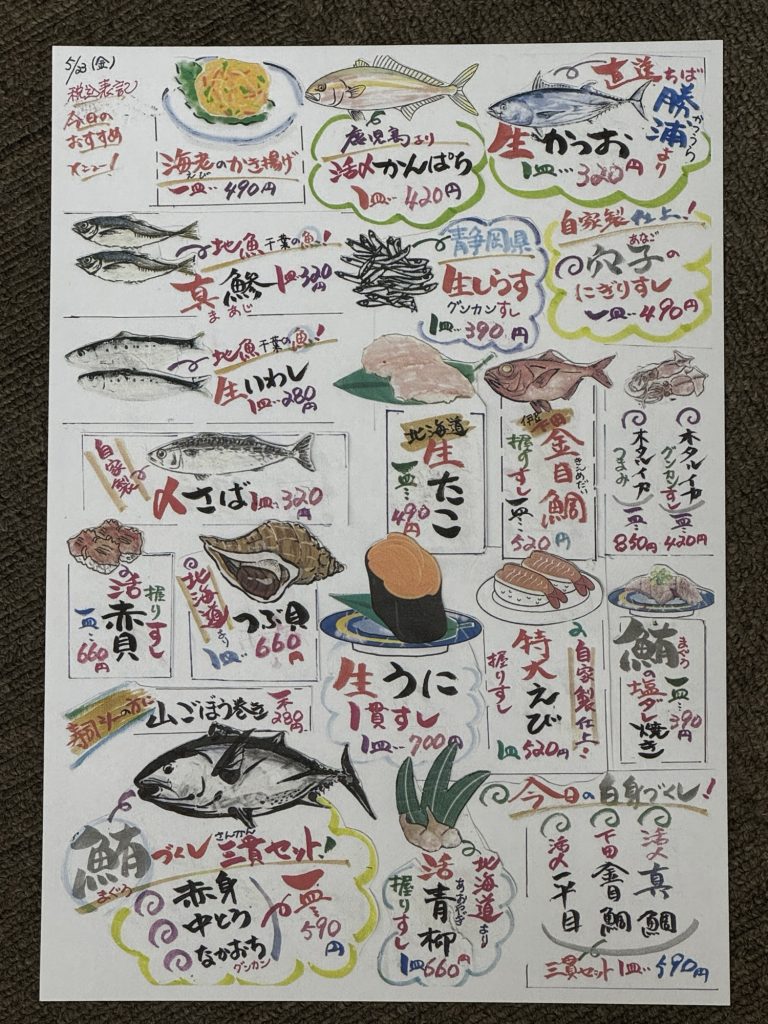 5/23(金)
税込表記
今日の
おすすめ
メニュー!
海老のかき揚げ
えび
一皿…490円
鹿児島より
活〆かんぱち
1皿…420円
直送ちば
勝浦より
かつうら
生かつお
1皿…320円
地魚千葉の魚!
真鯵 1皿320円
まあじ
静岡県
生しらす
グンカンすし
1皿…390円
自家製仕上!
あなご
穴子の
にぎりすし
一皿…490円
地魚千葉の魚!
生いわし
1皿…280円
自家製
〆さば 1皿…320円
北海道
生たこ
一皿…490円
下田
金目鯛
きんめだい
握りすし 一皿…520円
ホタルイカ
つまみ
一皿…850円
ホタルイカ
グンカンすし
一皿…420円
活赤貝
握りすし
一皿…660円
北海道より
つぶ貝
1皿…660円
生うに
1貫すし
1皿…700円
自家製仕上
特大えび
握りすし
1皿520円
まぐろ
鮪の塩ダレ焼き
一皿…390円
寿司ソーの方に
山ごぼう巻き 一本280円
鮪づくし三貫セット!
まぐろ
さんかん
赤身
中とろ
なかおち
グンカン
一皿…590円
北海道より
活青柳
あおやぎ
握りすし
1皿660円
今日の白身づくし!
活〆真鯛
下田金目鯛
活〆平目
三貫セット1皿…590円